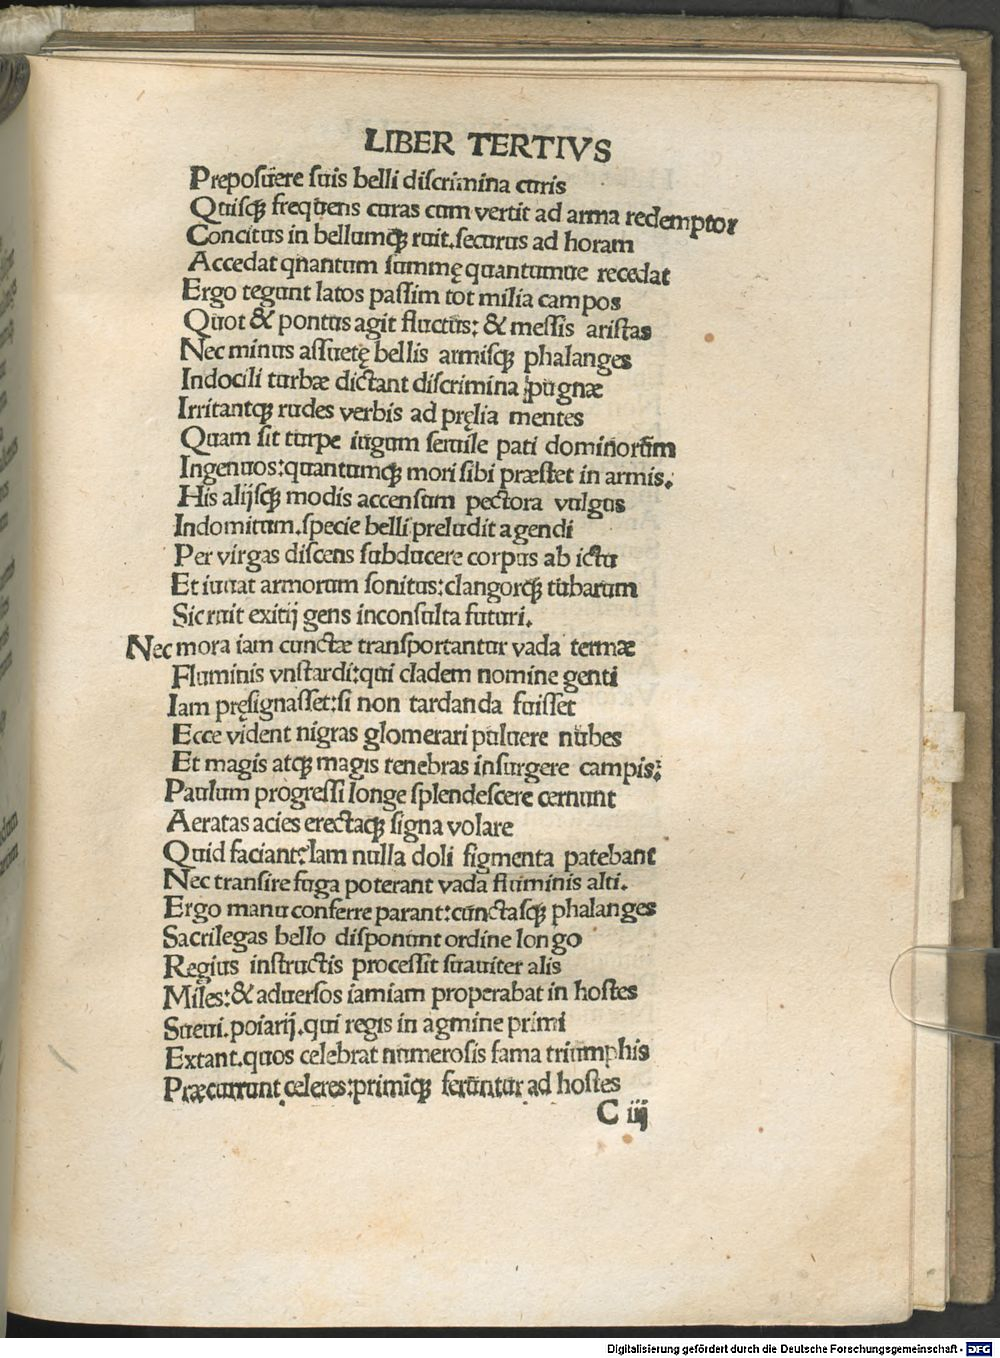 LIBER TERTIVS
Preposuere suis belli discrimina curis
Quisqꝫ frequens curas cum vertit ad arma redemptor
Concitus in bellumqꝫ ruit. securus ad horam
Accedat qnantum summę quantumue recedat
Ergo tegunt latos passim tot milia campos
Quot & pontus agit fluctus: & messis aristas
Nec minus assuetę bellis armisqꝫ phalanges
Indocili turbæ dictant discrimina pugnæ
Irritantqꝫ rudes verbis ad pręlia mentes
Quam sit turpe iugum seruile pati dominorum
Ingenuos: quantumqꝫ mori sibi præstet in armis.
His alijsqꝫ modis accensum pectora vulgus
Indomitum. specie belli preludit agendi
Per virgas discens subducere corpus ab ictu
Et iuuat armorum sonitus: clangorqꝫ tubarum
Sic ruit exitij gens inconsulta futuri.
Nec mora iam cunctæ transportantur vada turmæ
Fluminis vnstardi: qui cladem nomine genti
Iam pręsignasset: si non tardanda fuisset
Ecce vident nigras glomerari puluere nubes
Et magis atqꝫ magis tenebras insurgere campis:
Paulum progressi longe splendescere cernunt
Aeratas acies erectaqꝫ signa volare
Quid faciant? Iam nulla doli figmenta patebant
Nec transire fuga poterant vada fluminis alti.
Ergo manu conferre parant: cunctasqꝫ phalanges
Sacrilegas bello disponunt ordine longo
Regius instructis processit suauiter alis
Miles: & aduersos iamiam properabat in hostes
Sueui. poiarij. qui regis in agmine primi
Extant. quos celebrat numerosis fama triumphis
Præcurrunt celeres: primiqꝫ feruntur ad hostes
C iij
Digitalisierung gefördert durch die Deutsche Forschungsgemeinschaft - DFG